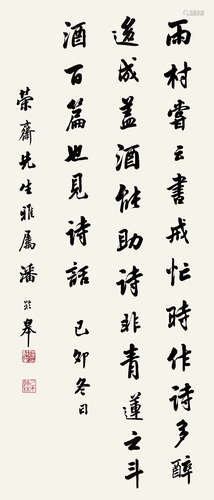 雨村嘗云書戒忙時作詩多醉
後成蓋酒能助詩非青蓮之斗
酒百篇也見詩話 己卯冬日
榮齋先生雅屬潘於皋